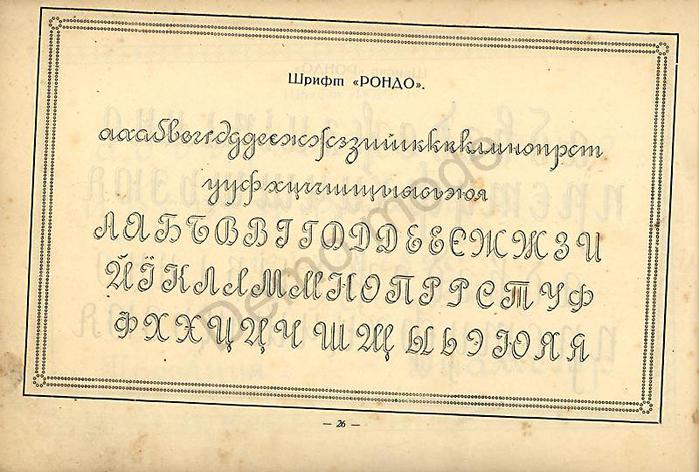 Шрифт «РОНДО».
ааабвггддгеєжэсззиййіккккклмнопрст
ууфхцччшщъыьэюя
ААББВВГГОДДЕЕЄЖЖЗИ
ЙЇКЛЛММНОПРРСТУФ
ФХХЦЦЧШЩЫЬЭЮЯЯ
— 26 —